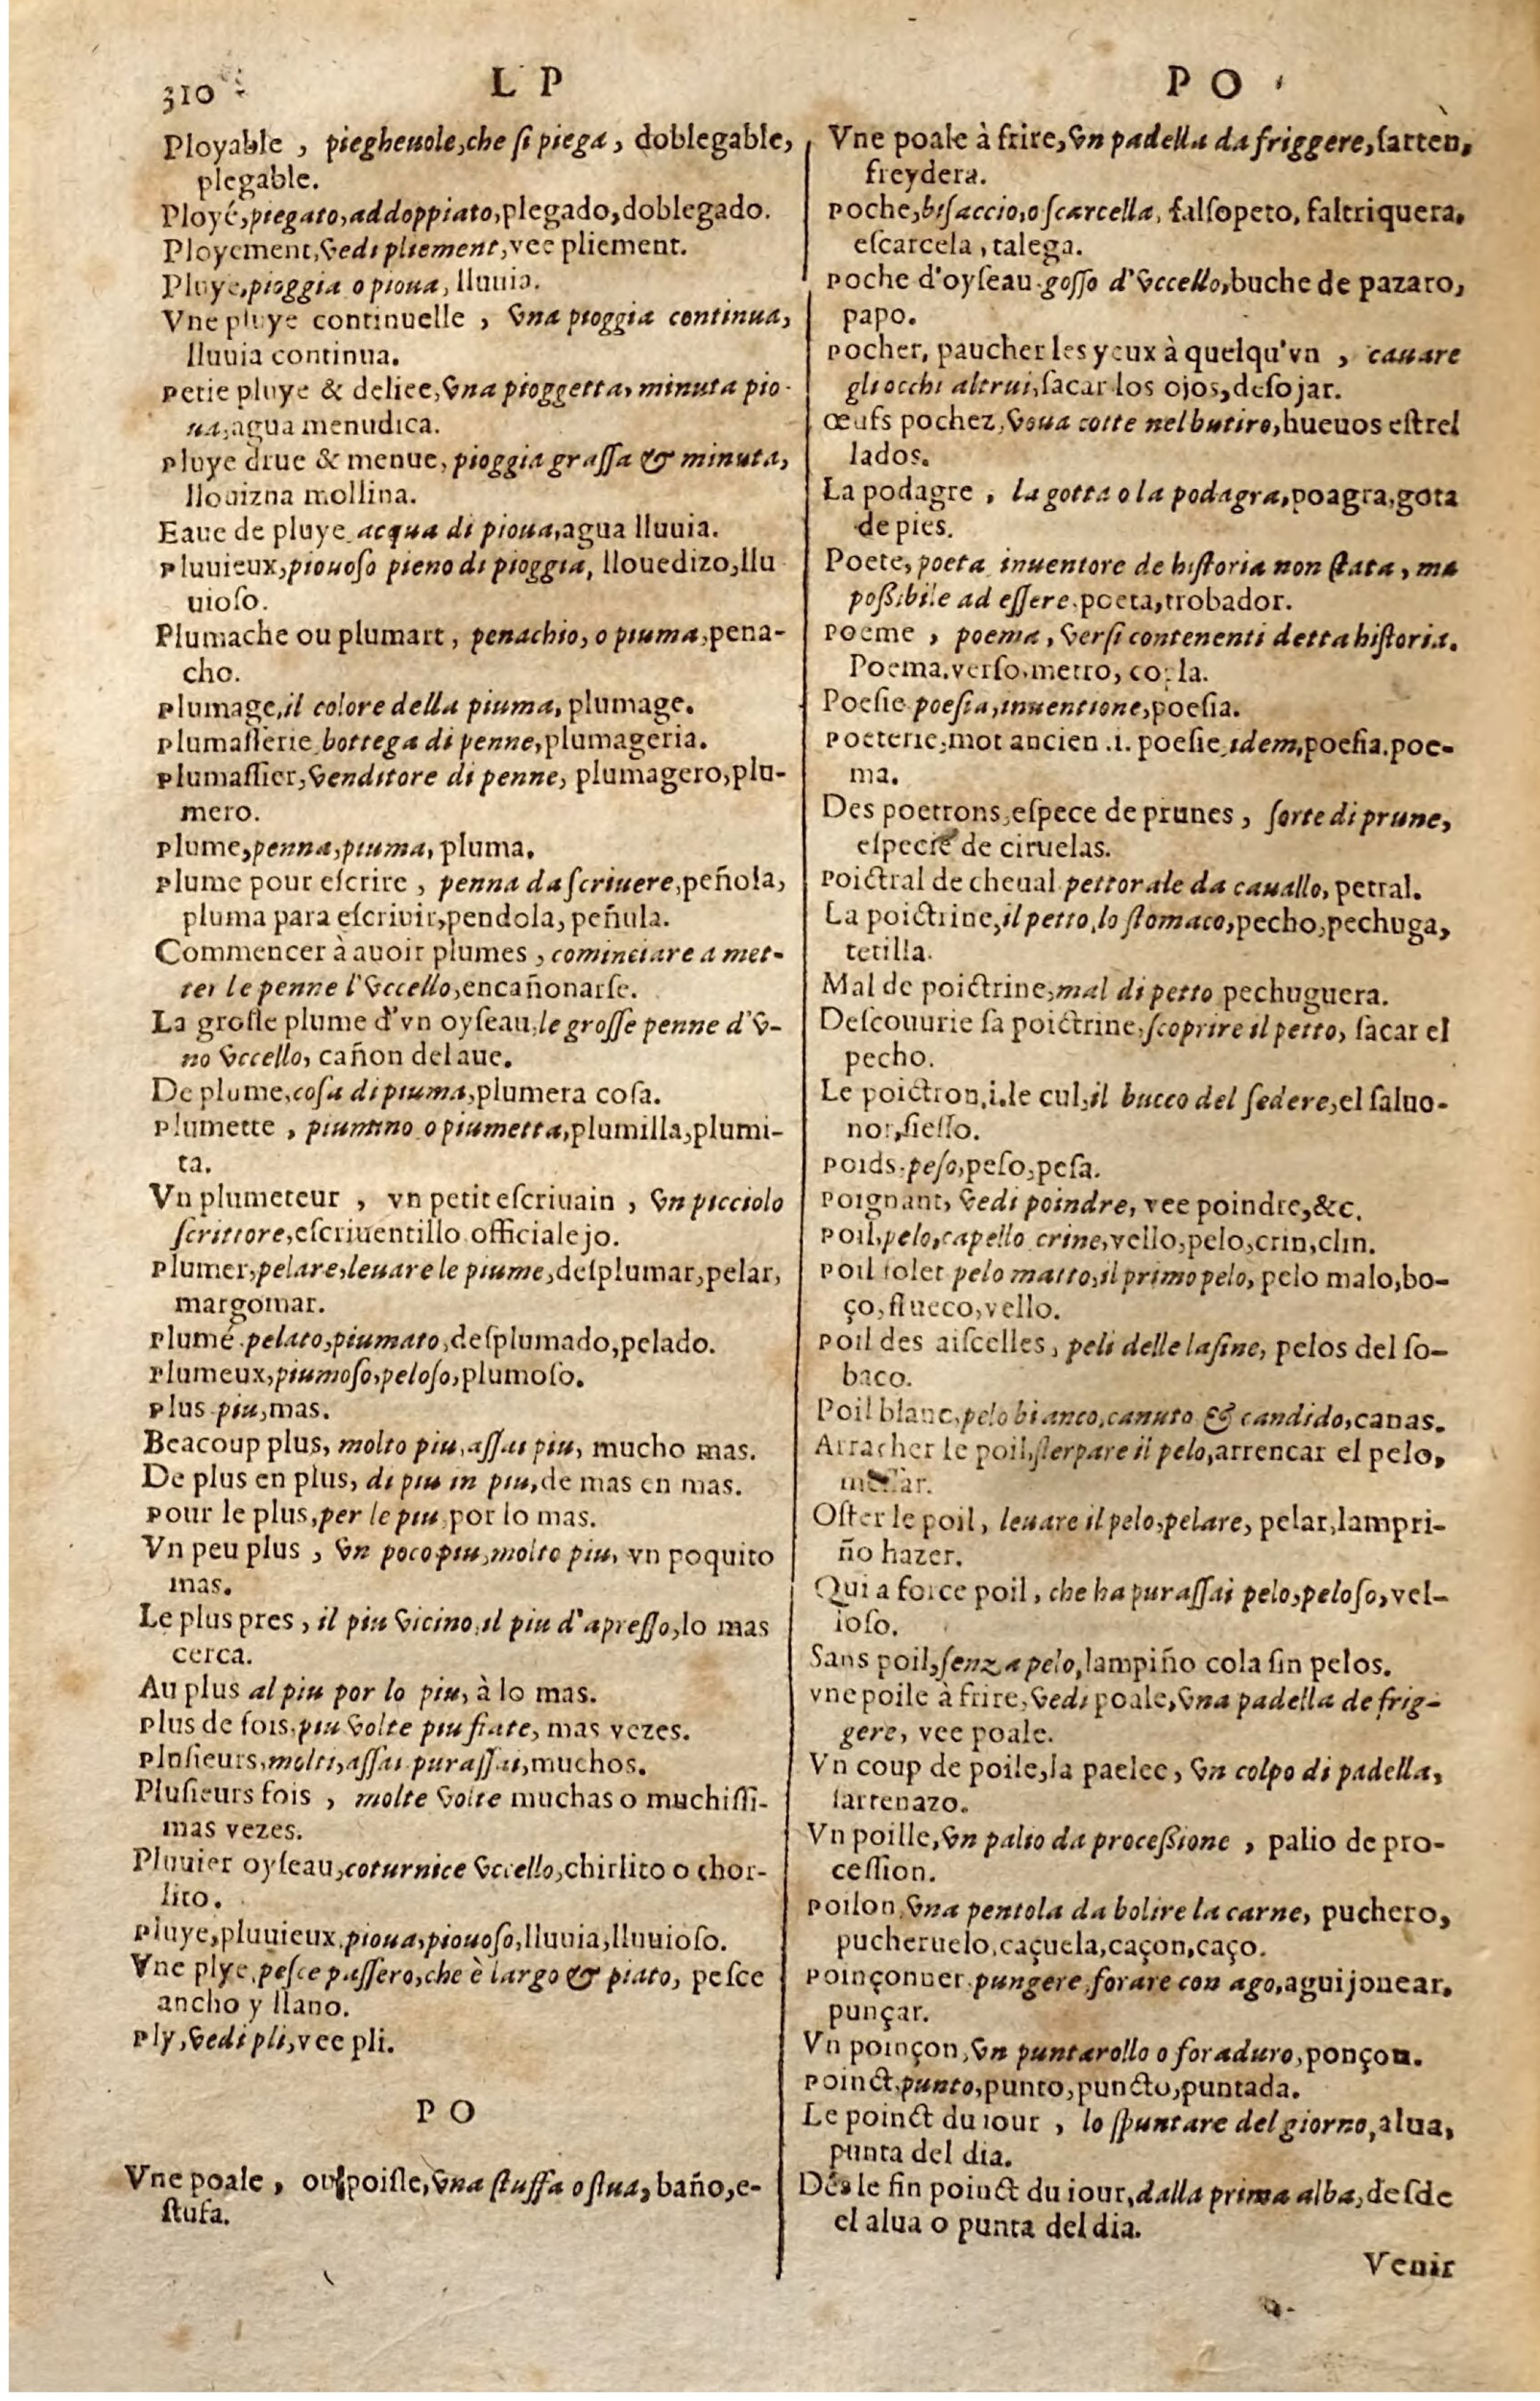 310
L P
Ployable , pieghenole,che ſi piega , doblegable,
plegable.
Ployé,piegato,addoppiato,plegado,doblegado.
Ployement,vedi pliement,vee pliement.
Pluye,pioggia o pioua, lluuia.
Vne pluye continuelle , vna pioggia continua,
lluuia continua.
Petie pluye & deliee,vna pioggetta, minuta pio-
ua,agua menudica.
Pluye drue & menue, pioggia graſſa & minuta,
llouizna mollina.
Eaue de pluye acqua di pioua,agua lluuia.
Pluuieux,piouoſo pieno di pioggia, llouedizo,llu
uioſo.
Plumache ou plumart , penachio, o piuma,pena-
cho.
Plumage,il colore della piuma, plumage.
Plumaſſerie bottega di penne,plumageria.
Plumaſſier,venditore di penne, plumagero,plu-
mero.
Plume,penna,piuma, pluma.
Plume pour eſcrire , penna da ſcriuere,peñola,
pluma para eſcriuir,pendola, peñula.
Commencer à auoir plumes , cominciare a met-
ter le penne l'vccello,encañonarſe.
La groſſe plume d'vn oyſeau,le groſſe penne d'v-
no vccello, cañon del aue.
De plume,coſa di piuma,plumera coſa.
Plumette , piumino o piumetta,plumilla,plumi-
ta.
Vn plumeteur , vn petit eſcriuain , vn picciolo
ſcrittore,eſcriuentillo officialejo.
Plumer,pelare,leuare le piume,deſplumar,pelar,
margomar.
Plumé pelato,piumato,deſplumado,pelado.
Plumeux,piumoſo,peloſo,plumoſo.
Plus piu,mas.
Beacoup plus, molto piu,aſſai piu, mucho mas.
De plus en plus, di piu in piu,de mas en mas.
Pour le plus,per le piu por lo mas.
Vn peu plus , vn poco piu,molto piu, vn poquito
mas.
Le plus pres , il piu vicino,il piu d'apreſſo,lo mas
cerca.
Au plus al piu por lo piu, à lo mas.
Plus de fois,piu volte piu fiate, mas vezes.
Pluſieurs,molti,aſſai puraſſai,muchos.
Pluſieurs fois , molte volte muchas o muchiſſi-
mas vezes.
Pluuier oyſeau,coturnice vccello,chirlito o chor-
lito.
Pluye,pluuieux,pioua,piouoſo,lluuia,lluuioſo.
Vne plye,peſce paſſero,che è largo & piato, peſce
ancho y llano.
Ply,vedi pli,vee pli.
P O
Vne poale , ou poiſle,vna ſtuffa o ſtua, baño,e-
ſtufa.
P O
Vne poale à frire,vn padella da friggere,ſarten,
freydera.
Poche,biſaccio,o ſcarcella, falſopeto, faltriquera,
eſcarcela , talega.
Poche d'oyſeau goſſo d'vccello,buche de pazaro,
papo.
Pocher, paucher les yeux à quelqu'vn , cauare
gli occhi altrui,ſacar los ojos,deſojar.
œufs pochez,voua cotte nel butiro,hueuos eſtrel
lados.
La podagre , la gotta o la podagra,poagra,gota
de pies.
Poete, poeta inuentore de hiſtoria non ſtata , ma
poßibile ad eſſere,poeta,trobador.
Poeme , poema , verſi contenenti detta hiſtoria.
Poema.verſo.metro, copla.
Poeſie poeſia,inuentione,poeſia.
Poeterie,mot ancien .i. poeſie,idem,poeſia.poe-
ma.
Des poetrons,eſpece de prunes , ſorte di prune,
eſpecie de ciruelas.
Poictral de cheual pettorale da cauallo, petral.
La poictrine,il petto,lo ſtomaco,pecho,pechuga,
tetilla.
Mal de poictrine,mal di petto pechuguera.
Deſcouurie ſa poictrine,ſcoprire il petto, ſacar el
pecho.
Le poictron,i.le cul,il bucco del ſedere,el ſaluo-
nor,ſieſſo.
Poids,peſo,peſo,peſa.
Poignant, vedi poindre, vee poindre,&c.
Poil,pelo,capello crine,vello,pelo,crin,clin.
Poil folet pelo matto,il primo pelo, pelo malo,bo-
ço,flueco,vello.
Poil des aiſcelles , peli delle laſine, pelos del ſo-
baco.
Poil blanc,pelo bianco,canuto & candido,canas.
Arracher le poil,ſterpare il pelo,arrencar el pelo,
Oſter le poil, leuare il pelo,pelare, pelar,lampri-
ño hazer.
Qui a force poil , che ha puraſſai pelo,peloſo,vel-
loſo.
Sans poil,ſenza pelo,lampiño cola ſin pelos.
vne poile à frire,vedi poale,vna padella de frig-
gere, vee poale.
Vn coup de poile,la paelee , vn colpo di padella,
ſartenazo.
Vn poille,vn palio da proceßione , palio de pro-
ceſſion.
Poilon,vna pentola da bolire la carne, puchero,
pucheruelo,caçuela,caçon,caço.
Poinçonner,pungere,forare con ago,aguijonear,
punçar.
Vn poinçon,vn puntarollo o foraduro,ponçon.
Poinct,punto,punto,puncto,puntada.
Le poinct du iour , lo ſpuntare del giorno,alua,
punta del dia.
Dés le fin poinct du iour,dalla prima alba,deſde
el alua o punta del dia.
Venir